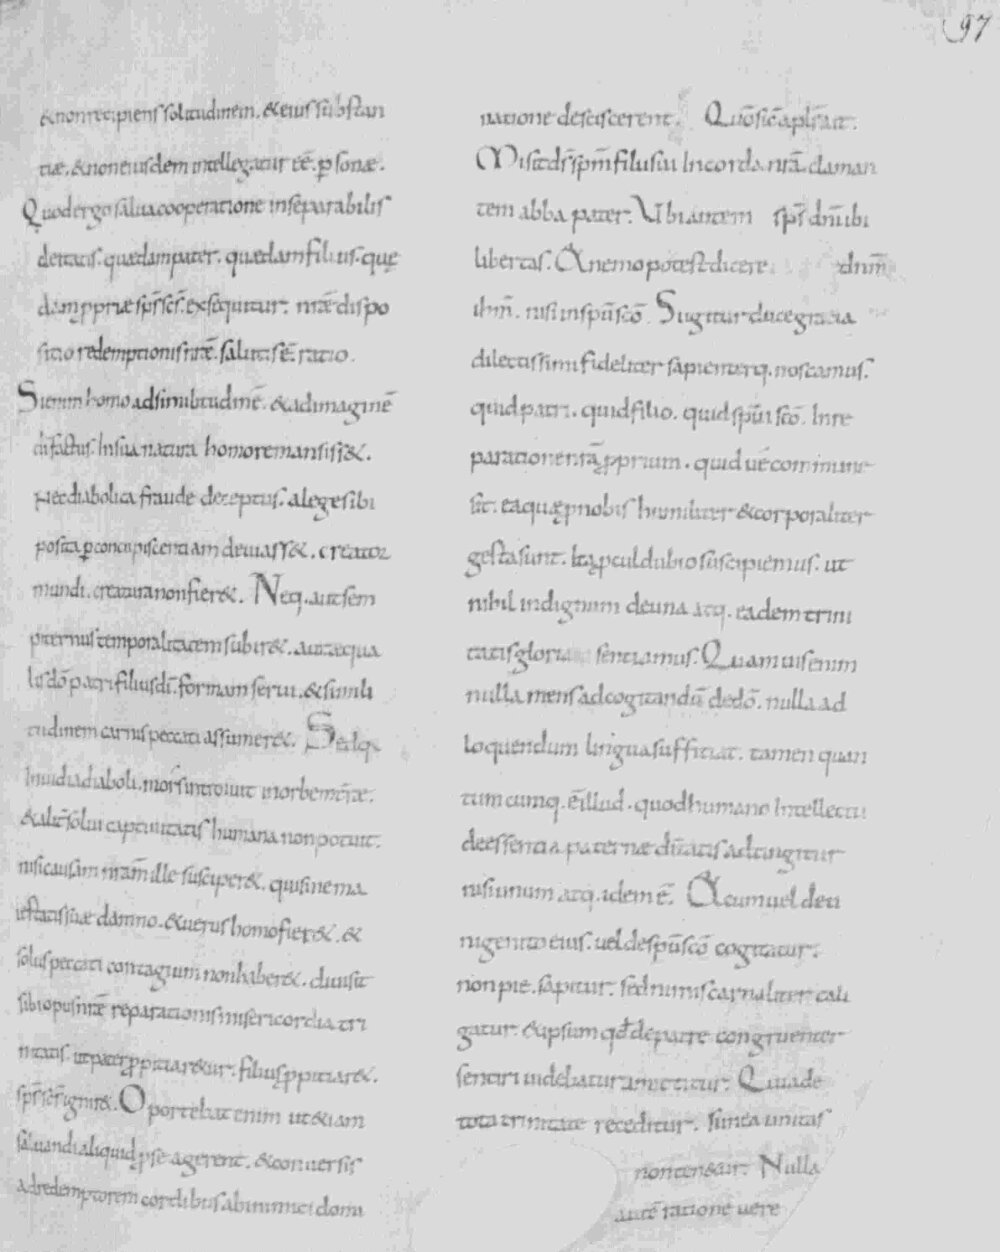 97
& non recipiens solitudinem. & eius substan
tiæ. & non eiusdem intellegatur eē. psonæ.
Quod ergo salua cooperatione inseparabilis
deitatis. quædam pater. quædam filius. quę
dam ppriæ sp̄s sc̄s exsequitur. nr̄æ dispo
sitio redemptionis nr̄æ. salutis ē ratio.
Si enim homo ad similitudinē. & ad imaginē
dī factus. In sua natura homo remansiss&.
Nec diabolica fraude deceptus. a lege sibi
posita p concupiscentiam deuiass&. creator
mundi. creatura non fier&. Neq. aut sem
piternus temporalitatem subir&. aut æqua
lis dō patri filius dī. formam serui. & simili
tudinem carnis peccati assumer&. Sed q
Inuidia diaboli. mors introiuit in orbem
& alit solui captiuitatis humana non potuit.
nisi causam nr̄am ille susciper&. qui sine ma
iestatis suæ damno. & uerus homo fier&. &
solus peccati contagium non haber&. diuisit
sibi opus nr̄æ reparationis misericordia tri
nitatis. ut pater ppitiar&ur. filius ppitiar&.
sp̄s sc̄s ignir&. Oportebat enim ut & iam
saluandi aliquid p se agerent. & conuersis
ad redemptorem cordibus ab inimici domi
natione desciscerent. Quō sic apl̄s ait.
Misit dī sp̄m filii sui In corda nr̄a. claman
tem abba pater. Ubi autem sp̄s dn̄i ibi
libertas. & nemo potest dicere dn̄m
ih̄m. nisi in sp̄u sc̄o. Si igitur duce gratia
dilectissimi fideliter sapienterq. noscamus.
quid patri. quid filio. quid sp̄ui sc̄o. In re
paratione nr̄a pprium. quid uē commune
sit. ea quæ p nobis humiliter & corporaliter
gesta sunt. Ita pcul dubio suscipiemus. ut
nihil indignum de una atq. eadem trini
tatis gloria sentiamus. Quamuis enim
nulla mens ad cogitandū de dō. nulla ad
loquendum lingua sufficiat. tamen quan
tumcumq. ē illud. quod humano Intellectu
de essentia paternæ diūtatis adtingitur
nisi unum atq. idem ē. & cum uel de u
nigenito eius. uel de sp̄u sc̄o cogitatur.
non pie. sapitur. sed nimis carnaliter cali
gatur. & ipsum qđ de patre congruenter
sentiri uidebatur amittitur. Quia de
tota trinitate receditur. si in ea unitas
non teneatur. Nulla
autē ratione uere